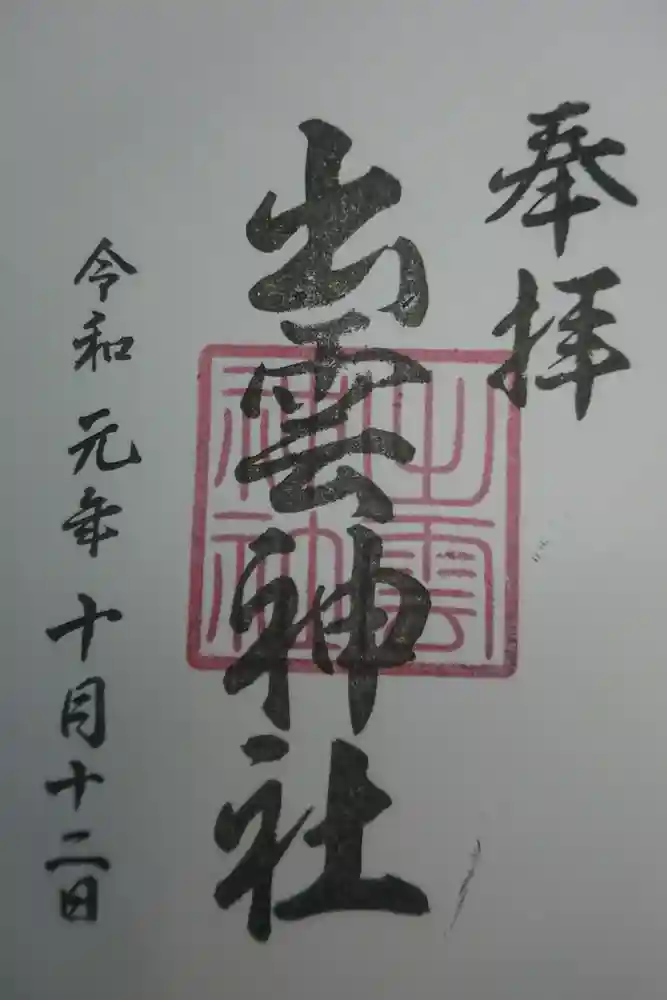 奉拝
出雲神社
出雲神社
令和元年十月十二日